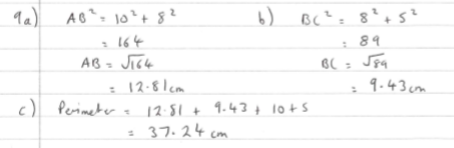 9a) AB² = 10² + 8²
= 164
AB = √164
= 12.81cm
b) BC² = 8² + 5²
= 89
BC = √89
= 9.43cm
c) Perimeter = 12.81 + 9.43 + 10 + 5
= 37.24 cm